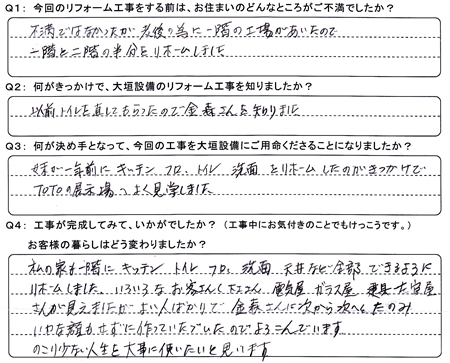 Q1： 今回のリフォーム工事をする前は、お住まいのどんなところがご不満でしたか？
不満ではなかったが 老後の為に一階の工場があいたので
一階と二階の半分をリホームしました
Q2： 何がきっかけで、大垣設備のリフォーム工事を知りましたか？
以前トイレを直してもらったので金森さんを知りました
Q3： 何が決め手となって、今回の工事を大垣設備にご用命くださることになりましたか？
妹が一年前に キッチン フロ、トイレ 洗面 とリホームしたのがきっかけで
TOTOの展示場へよく見学しました
Q4： 工事が完成してみて、いかがでしたか？ （工事中にお気付きのことでもけっこうです。）
お客様の暮らしはどう変わりましたか？
私の家も一階に キッチン トイレ フロ、洗面 天井など全部できるように
リホームしました。いろいろな お客さん 大工さん 電気屋 ガラス屋 建具
さんが見えましたがよい人ばかりで 金森さんに次から次へとたのみ
いやな顔もせずに作っていたでいたのでよろこんでいます
のこり少ない人生を大事に使いたいと思います